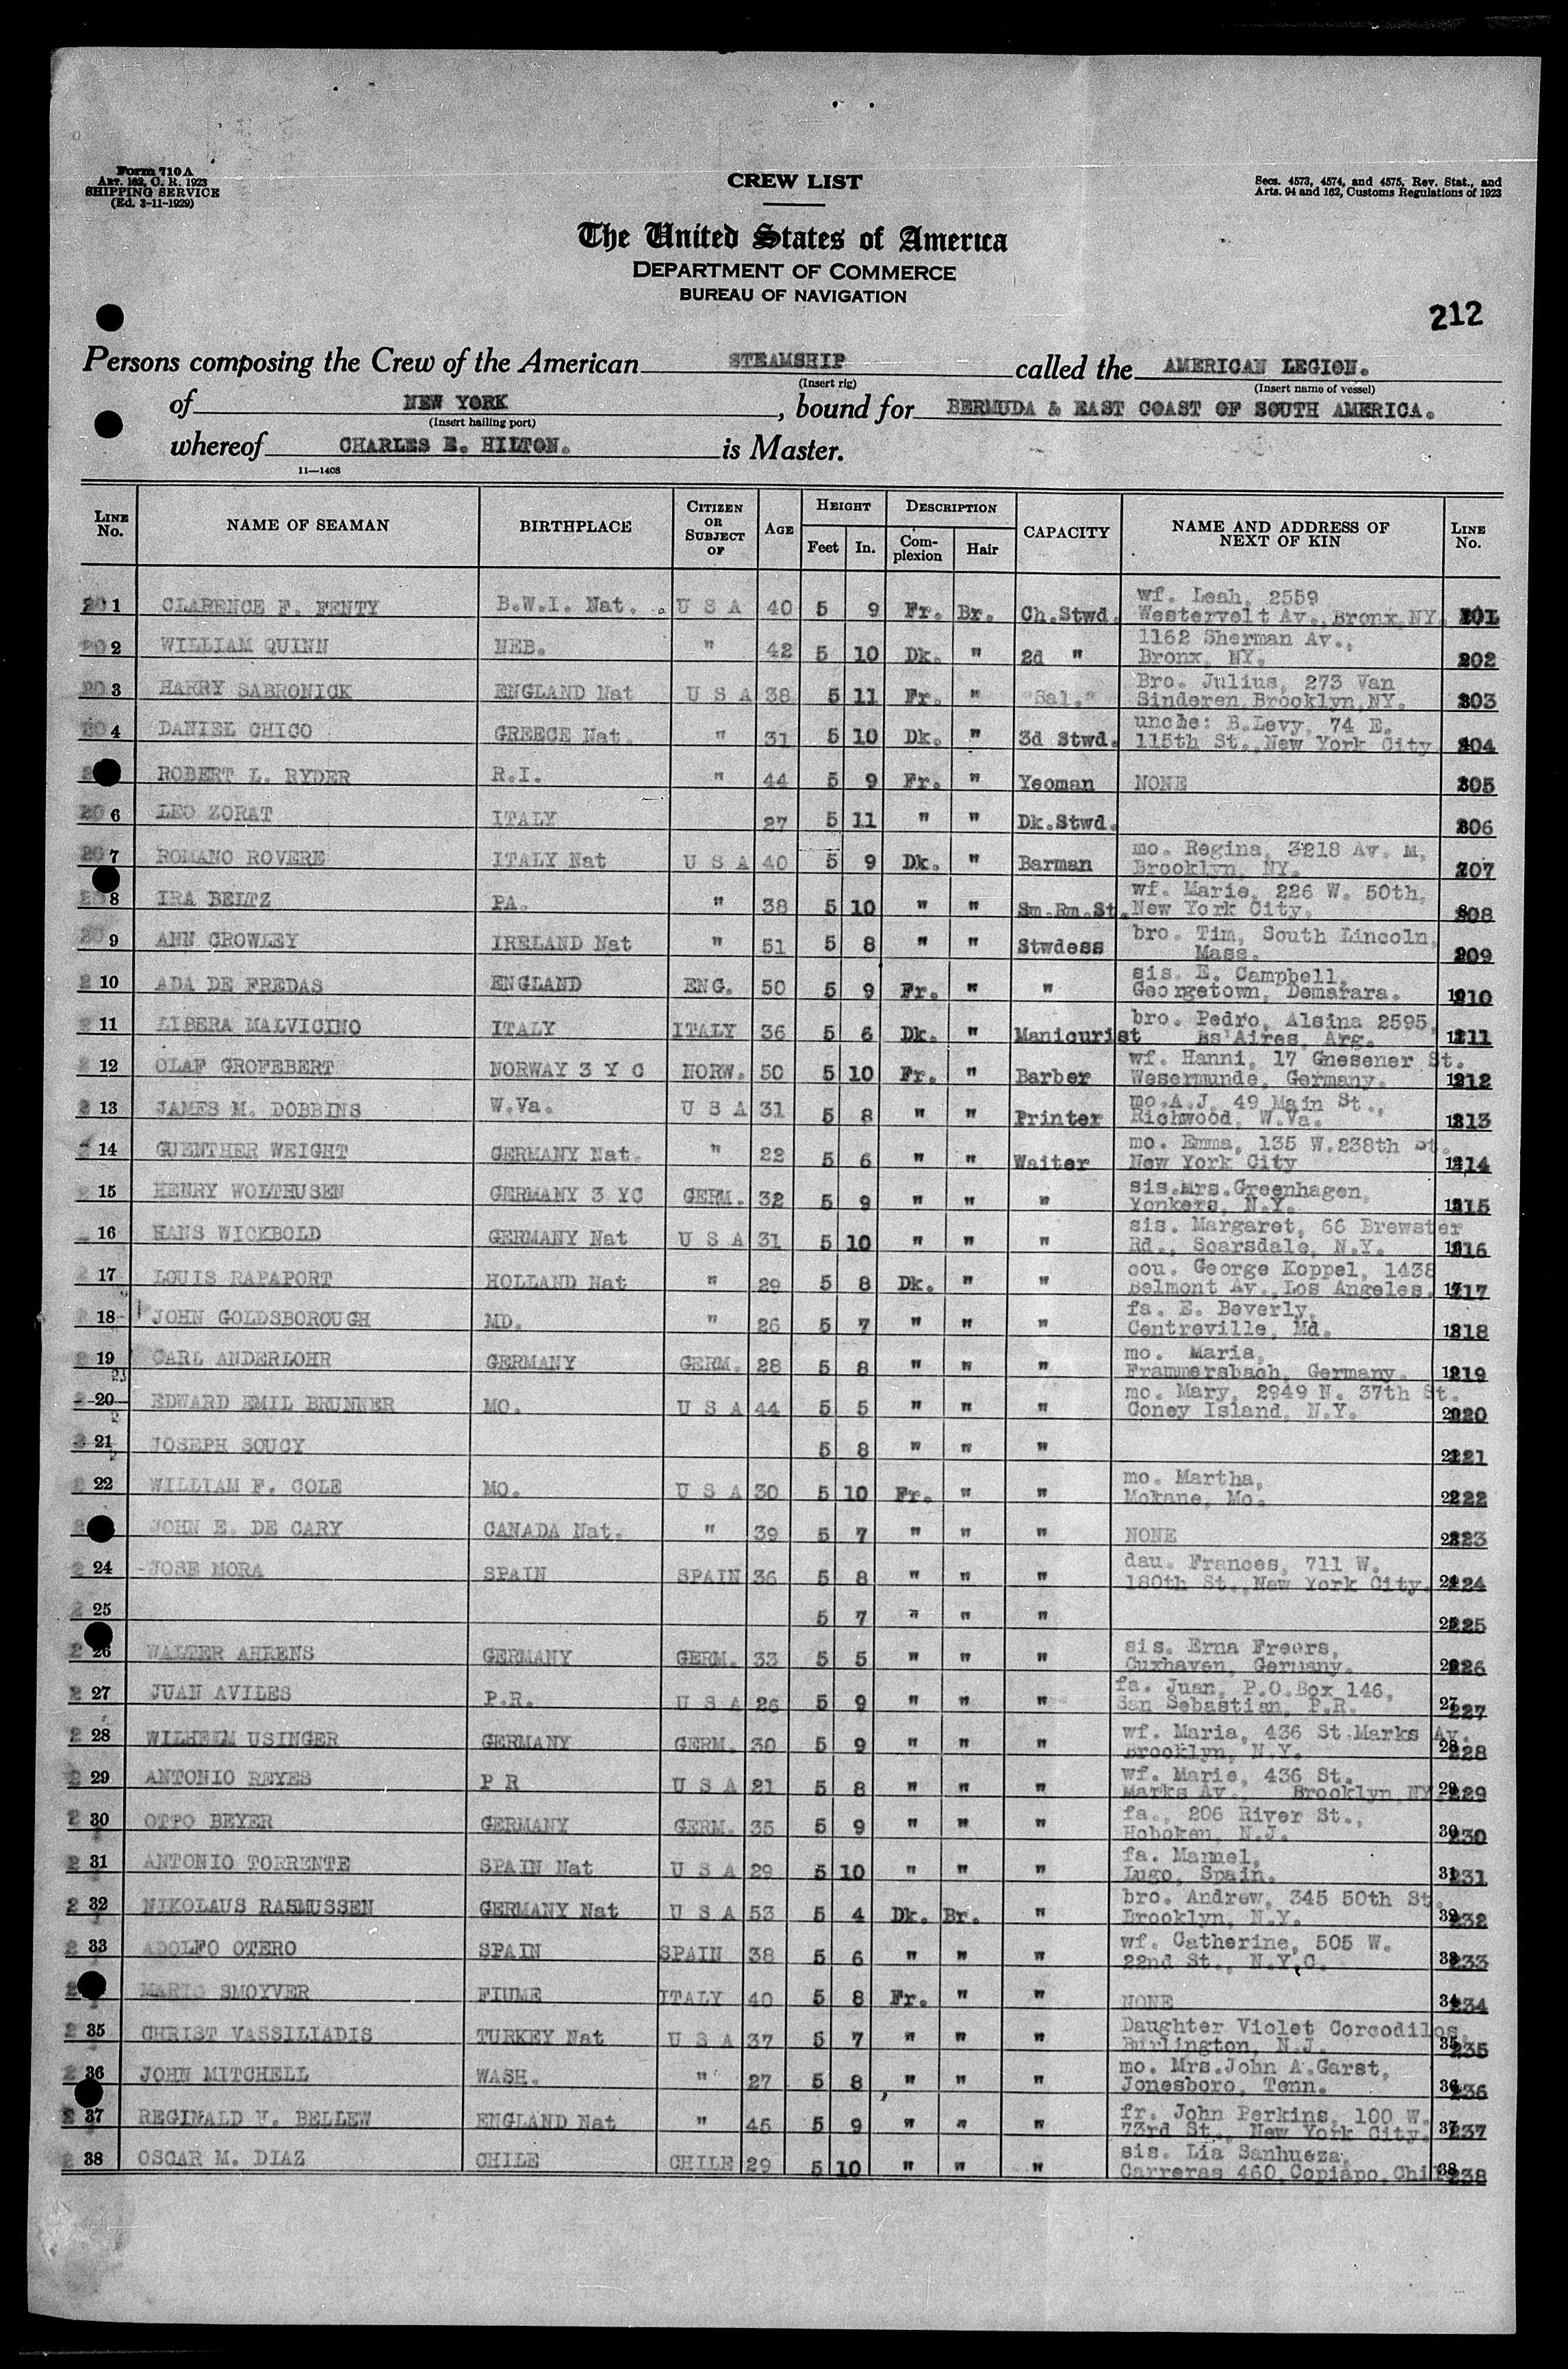 Form 710 A
ART. 162, C. R. 1923
SHIPPING SERVICE
(Ed. 3-11-1929)
CREW LIST
Secs. 4573, 4574, and 4575, Rev. Stat., and
Arts. 94 and 162, Customs Regulations of 1923
The United States of America
DEPARTMENT OF COMMERCE
BUREAU OF NAVIGATION
212
Persons composing the Crew of the American STEAMSHIP called the AMERICAN LEGION.
(Insert rig) (Insert name of vessel)
of NEW YORK, bound for BERMUDA & EAST COAST OF SOUTH AMERICA.
(Insert hailing port)
whereof CHARLES E. HILTON. is Master.
11—1408
LINE No. NAME OF SEAMAN BIRTHPLACE CITIZEN OR SUBJECT OF AGE HEIGHT Feet In. DESCRIPTION Complexion Hair CAPACITY NAME AND ADDRESS OF NEXT OF KIN LINE No.
1 CLARENCE F. FENTY B.W.I. Nat. U S A 40 5 9 Fr. Br. Ch.Stwd. wf. Leah, 2559
Westervelt Av., Bronx, NY. 201
2 WILLIAM QUINN NEB. " 42 5 10 Dk. " 2d " 1162 Sherman Av.,
Bronx, NY. 202
3 HARRY SABRONICK ENGLAND Nat U S A 38 5 11 Fr. " "Sal." Bro. Julius, 273 Van
Sinderen, Brooklyn, NY. 203
4 DANIEL CHICO GREECE Nat. " 31 5 10 Dk. " 3d Stwd. uncle: B.Levy, 74 E.
115th St., New York City 204
ROBERT L. RYDER R.I. " 44 5 9 Fr. " Yeoman NONE 205
6 LEO ZORAT ITALY 27 5 11 " " Dk.Stwd. 206
7 ROMANO ROVERE ITALY Nat U S A 40 5 9 Dk. " Barman mo. Regina, 3218 Av. M,
Brooklyn, NY. 207
8 IRA BEITZ PA. " 38 5 10 " " Sm.Rm.St. wf. Marie, 226 W. 50th,
New York City, 208
9 ANN CROWLEY IRELAND Nat " 51 5 8 " " Stwdess bro. Tim, South Lincoln,
Mass. 209
10 ADA DE FREDAS ENGLAND ENG. 50 5 9 Fr. " " sis. E. Campbell,
Georgetown, Demarara. 210
11 LIBERA MALVICINO ITALY ITALY 36 5 6 Dk. " Manicurist bro. Pedro, Alsina 2595,
Bs'Aires, Arg. 211
12 OLAF GROFEBERT NORWAY 3 Y C NORW. 50 5 10 Fr. " Barber wf. Hanni, 17 Gnesener St.
Wesermunde, Germany. 212
13 JAMES M. DOBBINS W.Va. U S A 31 5 8 " " Printer mo.A.J. 49 Main St.,
Richwood, W.Va. 213
14 GUENTHER WEIGHT GERMANY Nat. " 22 5 6 " " Waiter mo. Emma, 135 W.238th St.
New York City 214
15 HENRY WOLTHUSEN GERMANY 3 YC GERM. 32 5 9 " " " sis.Mrs.Greenhagen,
Yonkers, N.Y. 215
16 HANS WICKBOLD GERMANY Nat U S A 31 5 10 " " " sis. Margaret, 66 Brewster
Rd., Scarsdale, N.Y. 216
17 LOUIS RAPAPORT HOLLAND Nat " 29 5 8 Dk. " " cou. George Koppel, 1438
Belmont Av., Los Angeles. 217
18 JOHN GOLDSBOROUGH MD. " 26 5 7 " " " fa. E. Beverly,
Centreville, Md. 218
19 CARL ANDERLOHR GERMANY GERM. 28 5 8 " " " mo. Maria,
Frammersbach, Germany. 219
20 EDWARD EMIL BRUNNER MO. U S A 44 5 5 " " " mo. Mary, 2949 N. 37th St.
Coney Island, N.Y. 220
21 JOSEPH SOUCY 5 8 " " " 221
22 WILLIAM F. COLE MO. U S A 30 5 10 Fr. " " mo. Martha,
Mokane, Mo. 222
JOHN E. DE CARY CANADA Nat. " 39 5 7 " " " NONE 223
24 JOSE MORA SPAIN SPAIN 36 5 8 " " " dau. Frances, 711 W.
180th St., New York City. 224
25 5 7 " " " 225
26 WALTER AHRENS GERMANY GERM. 33 5 5 " " " sis. Erna Freers,
Cuxhaven, Germany. 226
27 JUAN AVILES P.R. U S A 26 5 9 " " " fa. Juan, P.O.Box 146,
San Sebastian, P.R. 227
28 WILHELM USINGER GERMANY GERM. 30 5 9 " " " wf. Maria, 436 St.Marks Av.
Brooklyn, N.Y. 228
29 ANTONIO REYES P R U S A 21 5 8 " " " wf. Marie, 436 St.
Marks Av., Brooklyn, NY 229
30 OTTO BEYER GERMANY GERM. 35 5 9 " " " fa., 206 River St.,
Hoboken, N.J. 230
31 ANTONIO TORRENTE SPAIN Nat U S A 29 5 10 " " " fa. Manuel,
Lugo, Spain. 231
32 NIKOLAUS RASMUSSEN GERMANY Nat U S A 53 5 4 Dk. Br. " bro. Andrew, 345 50th St.
Brooklyn, N.Y. 232
33 ADOLFO OTERO SPAIN SPAIN 38 5 6 " " " wf. Catherine, 505 W.
22nd St., N.Y.C. 233
MARIO SMOYVER FIUME ITALY 40 5 8 Fr. " " NONE 234
35 CHRIST VASSILIADIS TURKEY Nat U S A 37 5 7 " " " Daughter Violet Corcodilos,
Burlington, N.J. 235
36 JOHN MITCHELL WASH. " 27 5 8 " " " mo. Mrs.John A.Garst,
Jonesboro, Tenn. 236
37 REGINALD V. BELLEW ENGLAND Nat " 45 5 9 " " " fr. John Perkins, 100 W.
73rd St., New York City. 237
38 OSCAR M. DIAZ CHILE CHILE 29 5 10 " " " sis. Lia Sanhueza,
Carreras 460, Copiapo, Chile 238